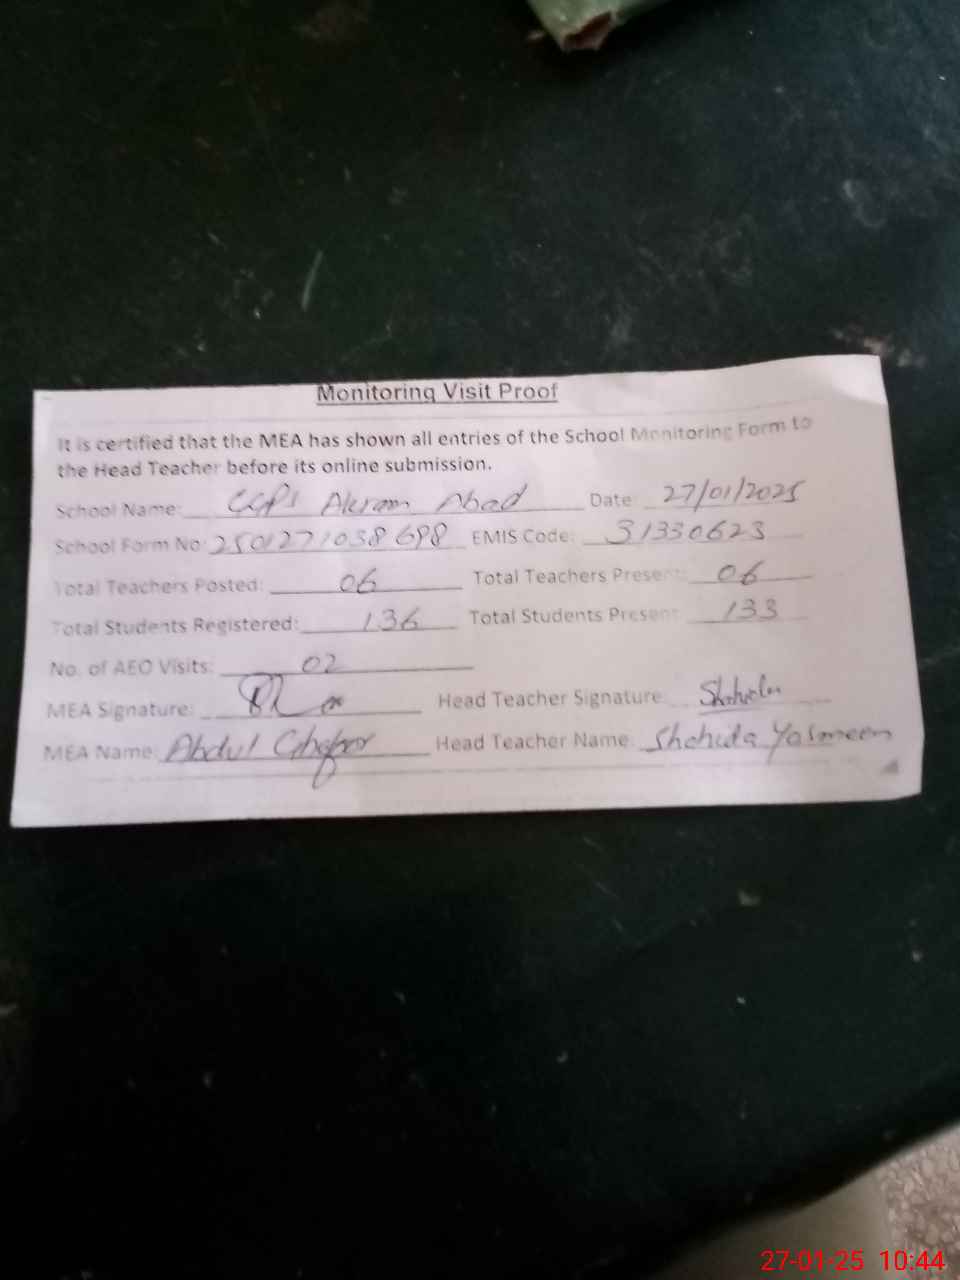 Monitoring Visit Proof
It is certified that the MEA has shown all entries of the School Monitoring Form to
the Head Teacher before its online submission.
School Name: GGPS Akram Abad Date 27/01/2025
School Form No: 2501271038698 EMIS Code: 31330623
Total Teachers Posted: 06 Total Teachers Present: 06
Total Students Registered: 136 Total Students Present 133
No. of AEO Visits: 02
MEA Signature: Head Teacher Signature Shahida
MEA Name: Abdul Ghafoor Head Teacher Name: Shahida Yasmeen
27-01-25 10:44